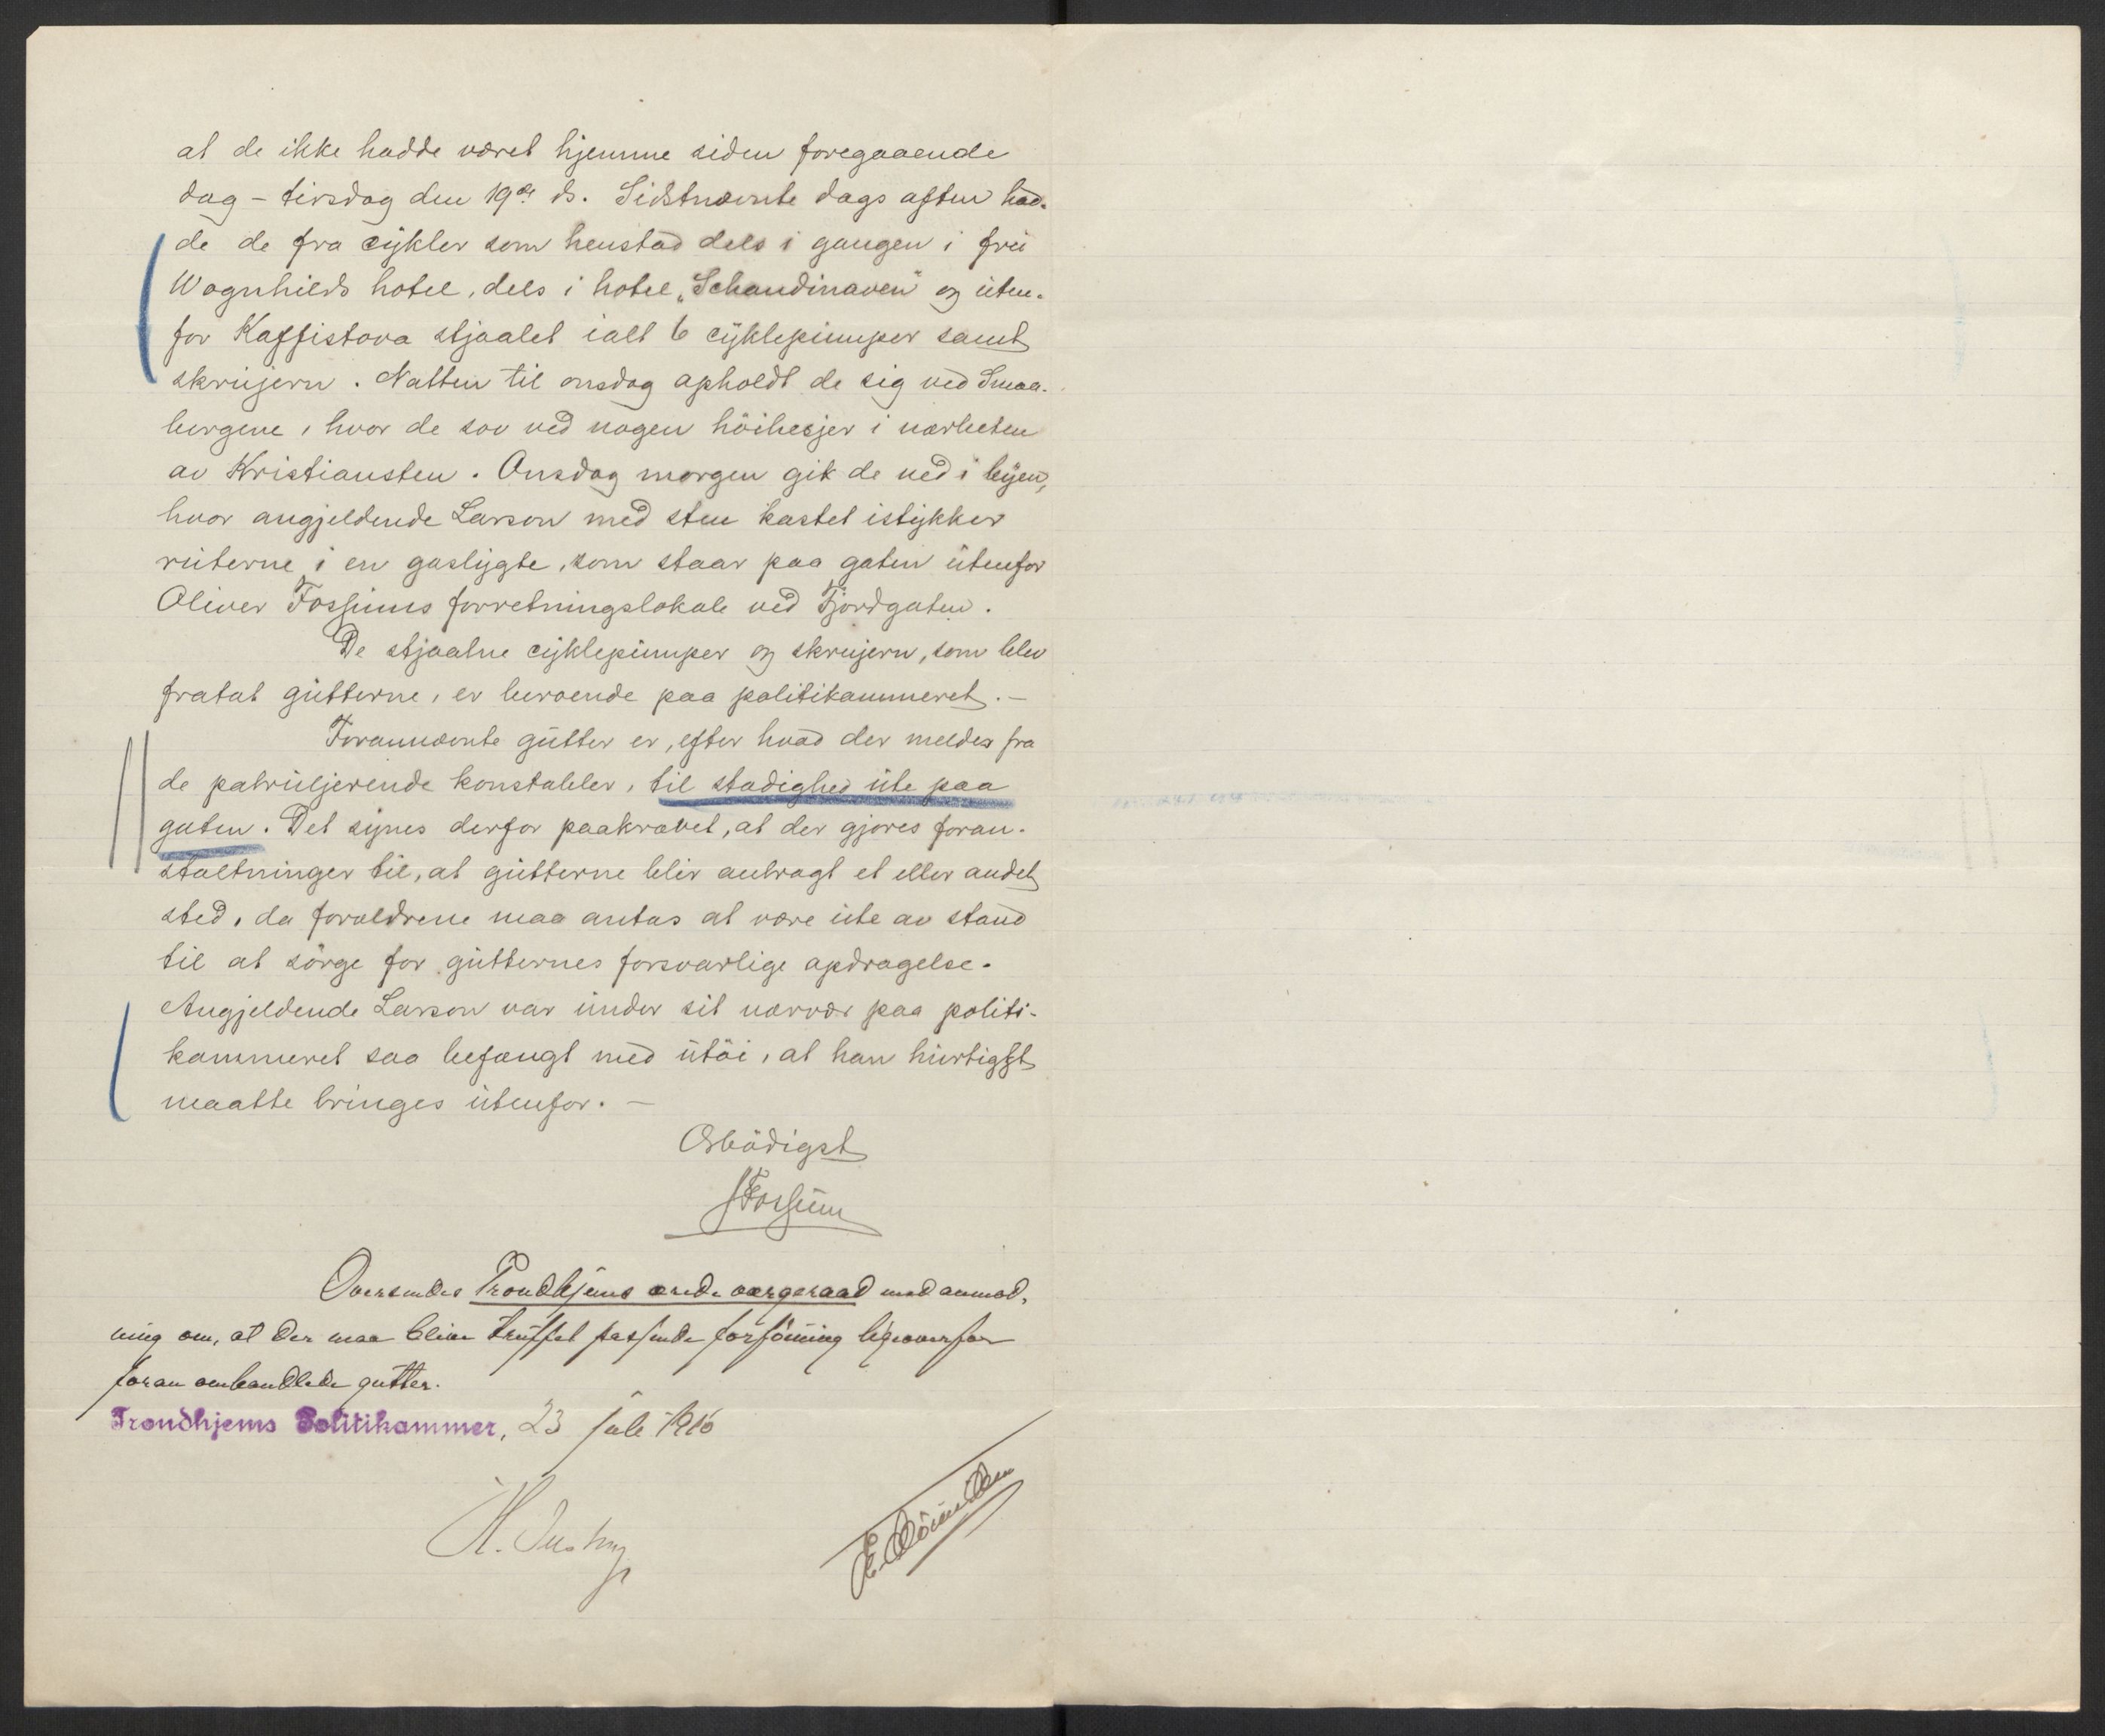 at de ikke hadde været hjemme siden foregaaende
dag - tirsdag den 19de ds. Sidstnævnte dags aften had-
de de fra cykler som henstod dels i gangen i fru
Wognhilds hotel, dels i hotel „Schandinaven" og uten-
for Kaffistova stjaalet ialt 6 cyklepumper samt
skrujern. Natten til onsdag opholdt de sig ved Smaa-
bergene, hvor de sov ved nogen höihesjer i nærheten
av Kristiansten. Onsdag morgen gik de ned i byen,
hvor angjeldende Larson med sten kastet istykker
ruterne i en gaslygte, som staar paa gaten utenfor
Oliver Fossums forretningslokale ved Fjordgaten.
De stjaalne cyklepumper og skrujern, som blev
fratat gutterne, er beroende paa politikammeret. -
Forannævnte gutter er, efter hvad der meldes fra
de patruljerende konstabler, til stadighed ute paa
gaten. Det synes derfor paakrævet, at der gjores foran-
staltninger til, at gutterne blir anbragt et eller andet
sted, da forældrene maa antas at være ute av stand
til at sörge for gutternes forsvarlige opdragelse.
Angjeldende Larson var under sit nærvær paa politi-
kammeret saa befængt med utöi, at han hurtigst
maatte bringes utenfor. -
Ærbödigst
Fossum
Oversendes Trondhjems vergeraad med anmod-
ning om, at der maa blive truffet passende forföining ligeoverfor
foran omhandlede gutter.
Trondhjems Politikammer, 23 juli 1910